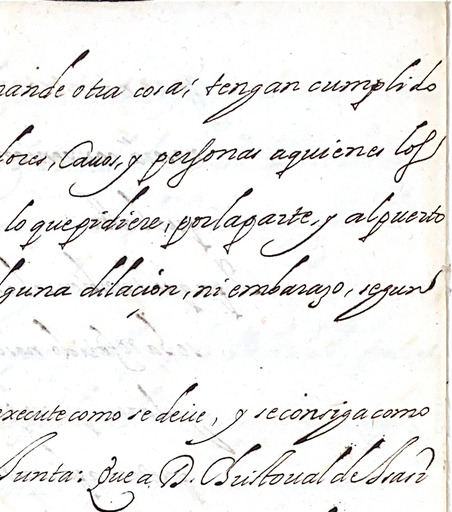 mande otra cosa; tengan cumplido
dores, Cauos, y personas aquienes los
lo que pidiere, por la parte, y al puerto
lguna dilación, ni embarazo, segun
execute como se deue, y se consiga como
Junta: Que a D. Christoual de